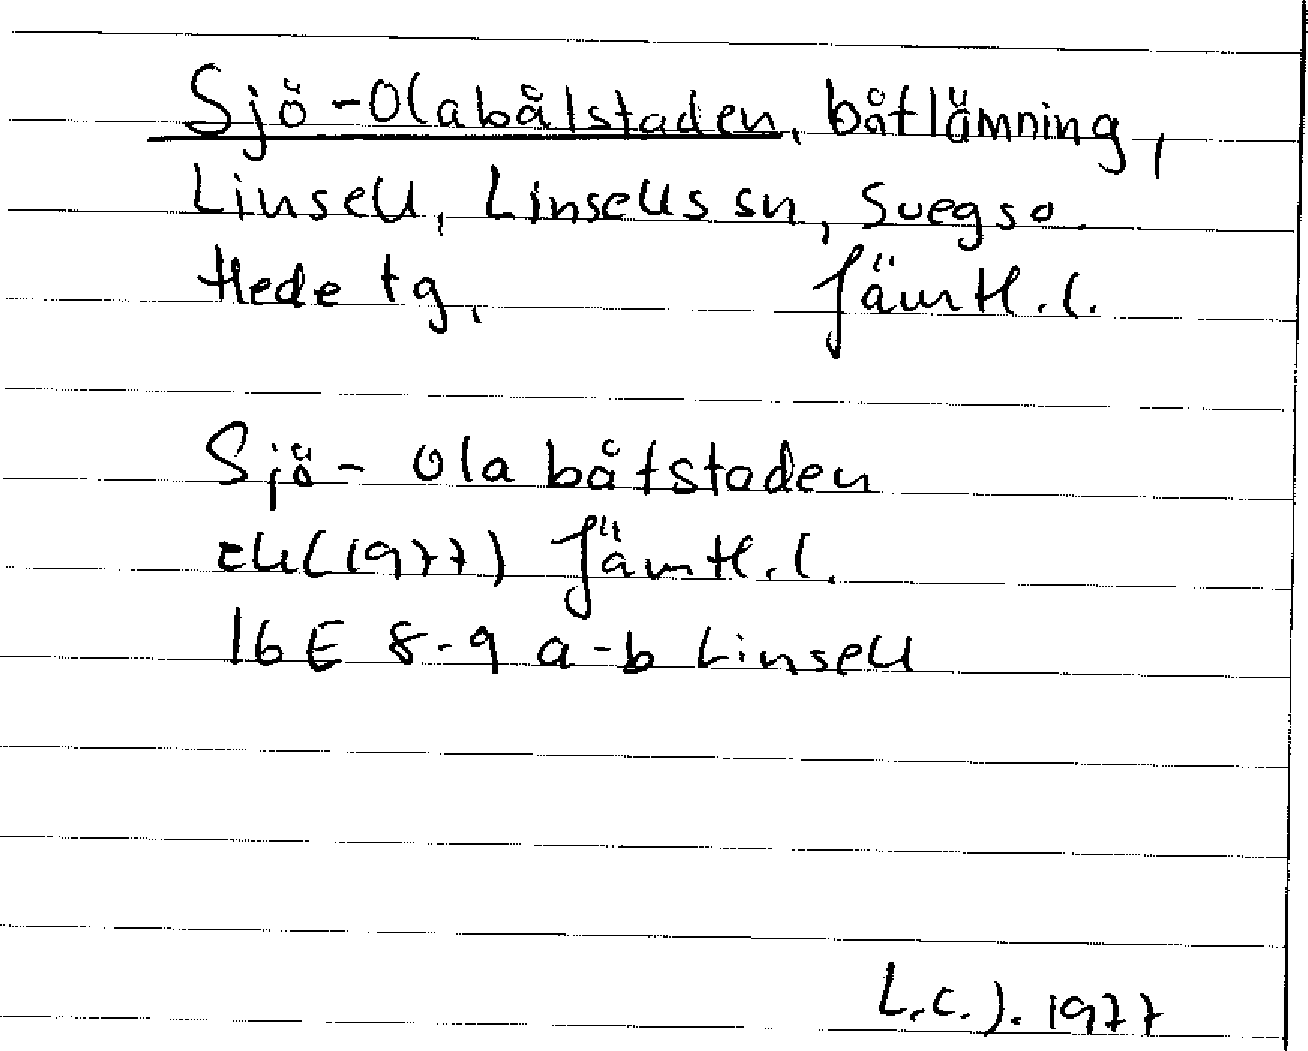 Sjö-Olabålstaden, båtlämning,
Linsell, Linsells sn, Svegs o.
Hede tg, Jämtl. l.
Sjö-Ola båtstaden
ek (1977) Jämtl. l.
16 E 8-9 a-b Linsell
L.C.J. 1977